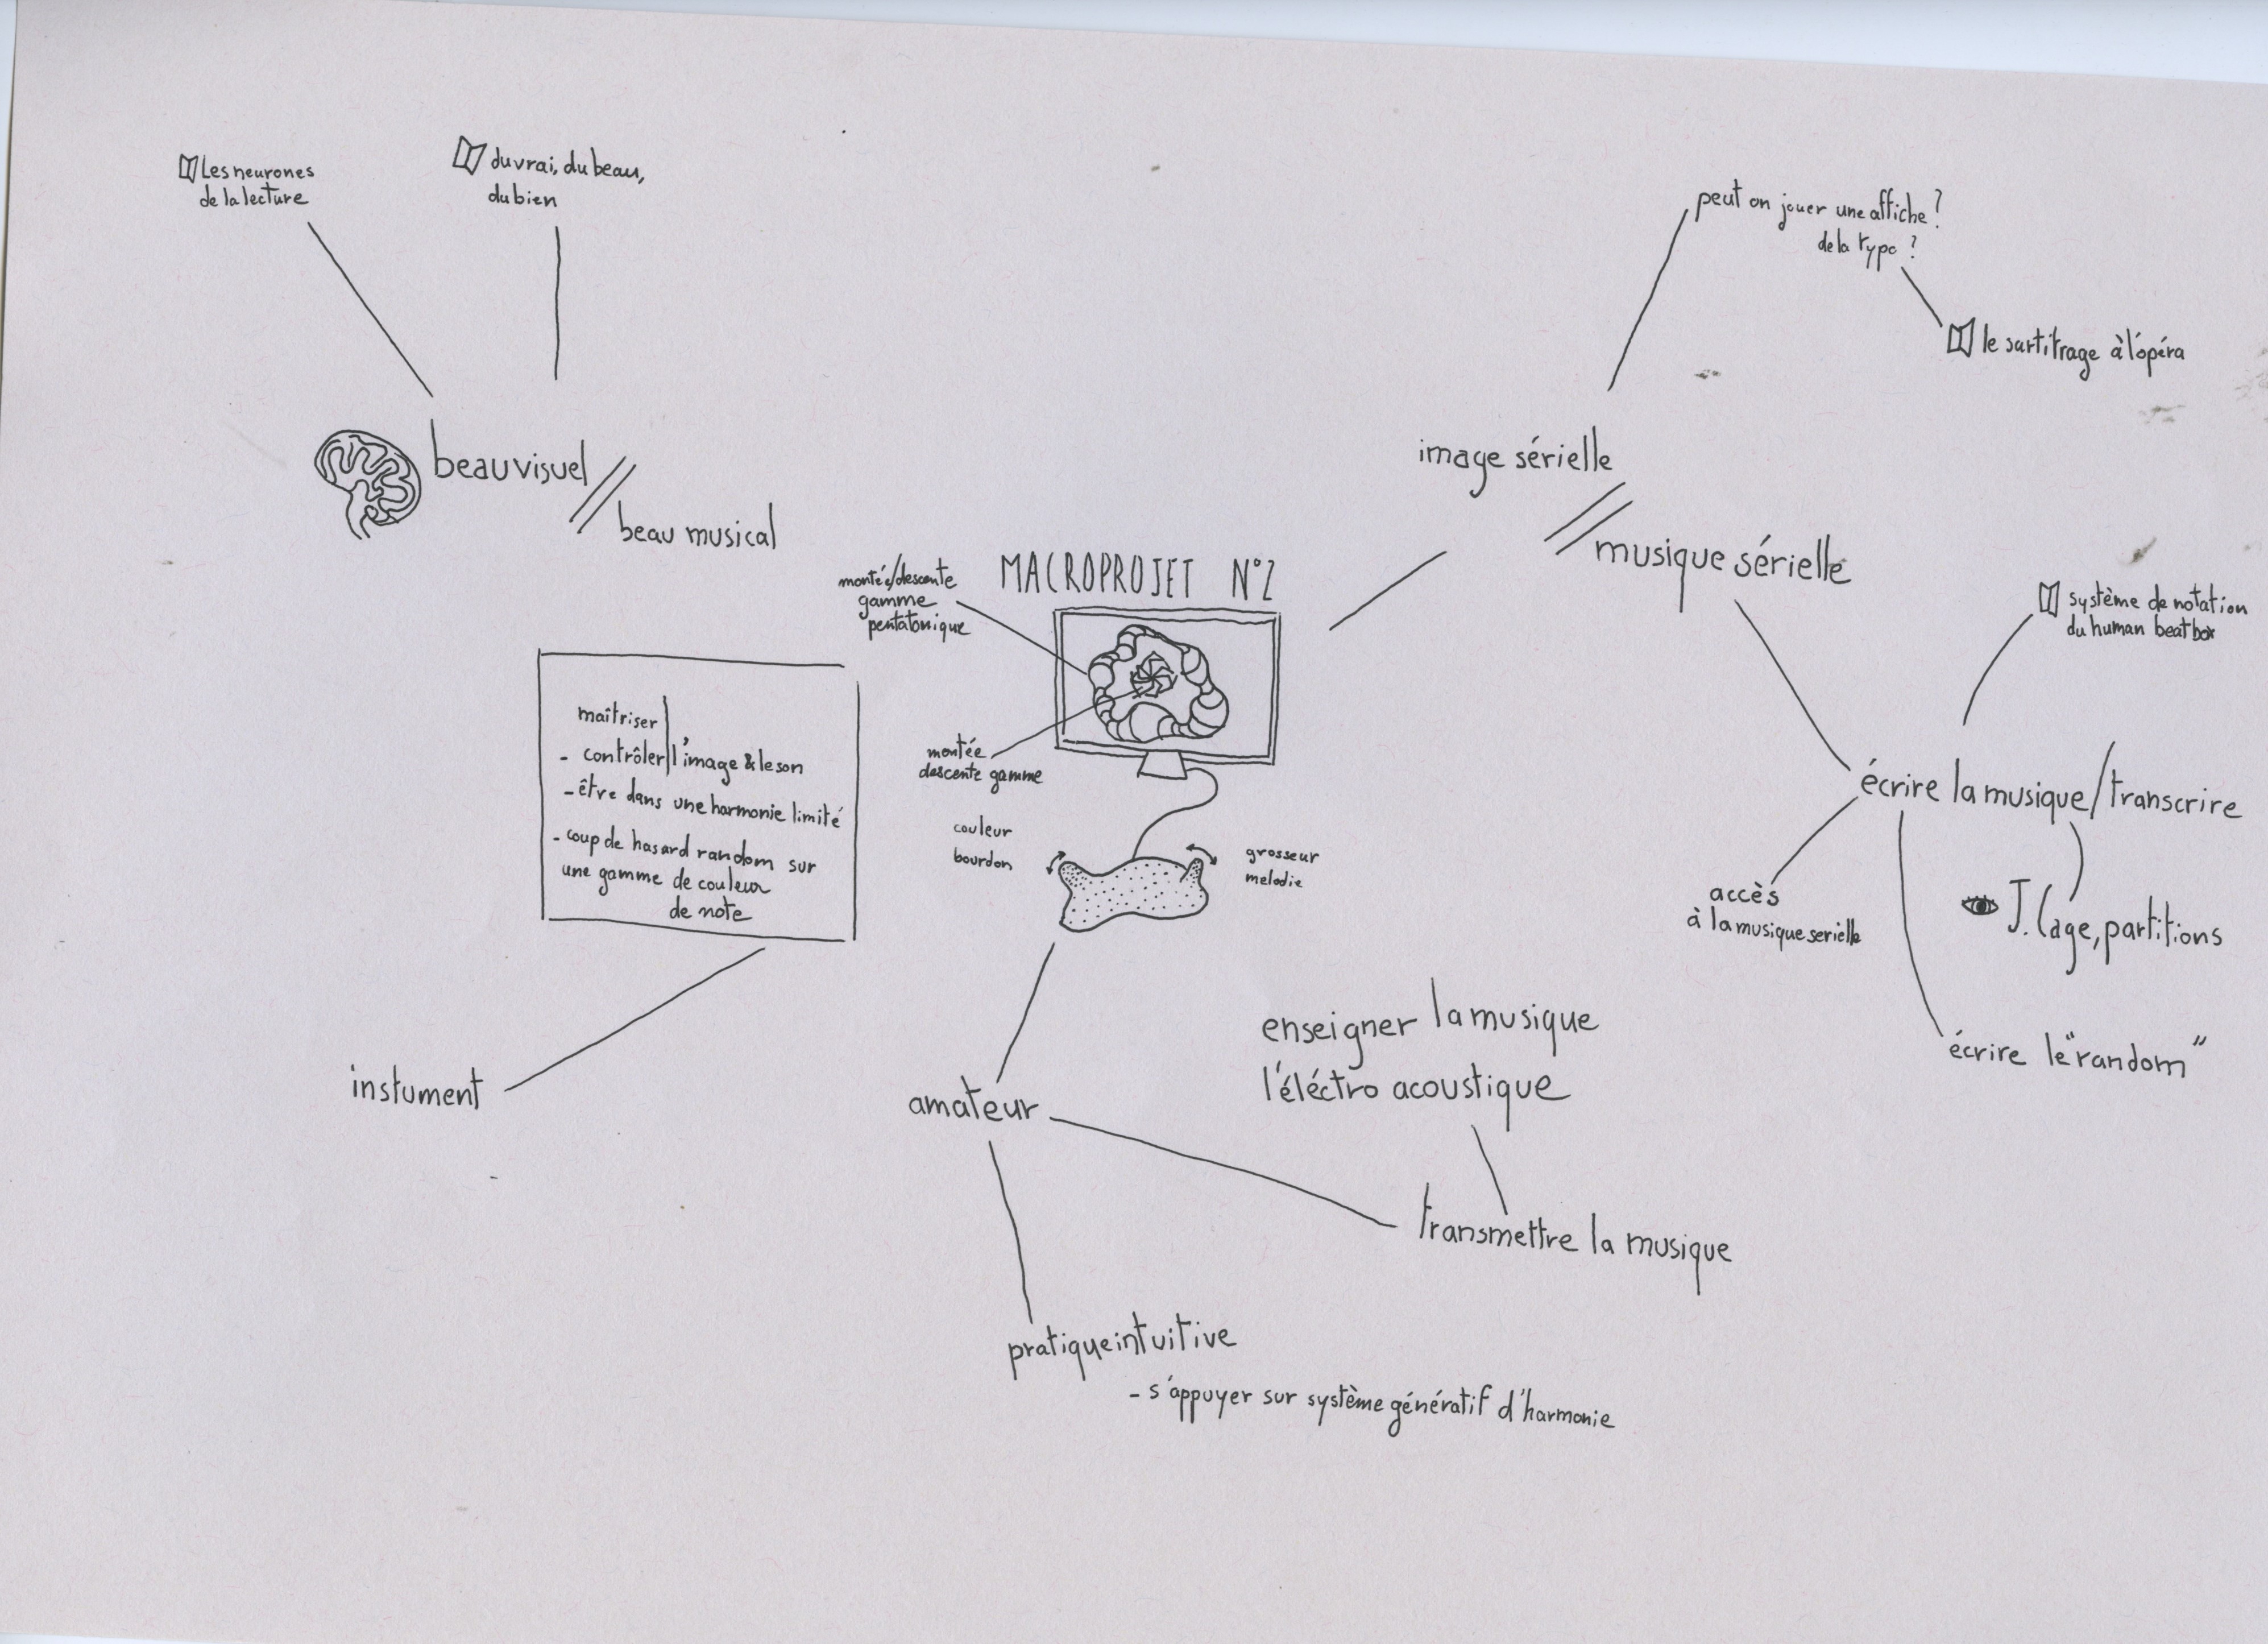 Les neurones
de la lecture
du vrai, du beau,
du bien
beau visuel
beau musical
peut on jouer une affiche ?
de la typo ?
le surtitrage à l'opéra
image sérielle
musique sérielle
MACROPROJET N°2
montée/descente
gamme
pentatonique
montée
descente gamme
couleur
bourdon
grosseur
melodie
maîtriser
- contrôler l'image & le son
- être dans une harmonie limité
- coup de hasard random sur
une gamme de couleur
de note
instument
système de notation
du human beatbox
écrire la musique/transcrire
accès
à la musique serielle
J. Cage, partitions
écrire le "random"
amateur
enseigner la musique
l'éléctro acoustique
transmettre la musique
pratique intuitive
- s'appuyer sur système génératif d'harmonie